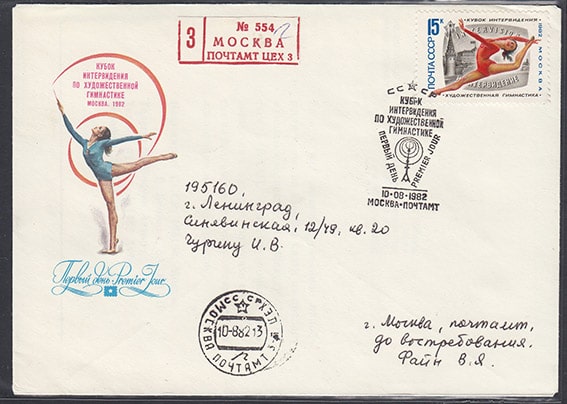 КУБОК
ИНТЕРВИДЕНИЯ
ПО ХУДОЖЕСТВЕННОЙ
ГИМНАСТИКЕ
МОСКВА. 1982
Первый день Premier Jour
3
№ 554
МОСКВА
ПОЧТАМТ ЦЕХ 3
15К
ПОЧТА СССР
КУБОК ИНТЕРВИДЕНИЯ
1982
МОСКВА
ХУДОЖЕСТВЕННАЯ ГИМНАСТИКА
СССР
КУБОК
ИНТЕРВИДЕНИЯ
ПО ХУДОЖЕСТВЕННОЙ
ГИМНАСТИКЕ
ПЕРВЫЙ ДЕНЬ
PREMIER JOUR
10-08-1982
МОСКВА-ПОЧТАМТ
195160,
г. Ленинград,
Синявинская, 12/49, кв. 20
Чурину И. В.
СССР
10-8.82 13
МОСКВА
ПОЧТАМТ
г. Москва, почтамт,
до востребования.
Файн В. Я.